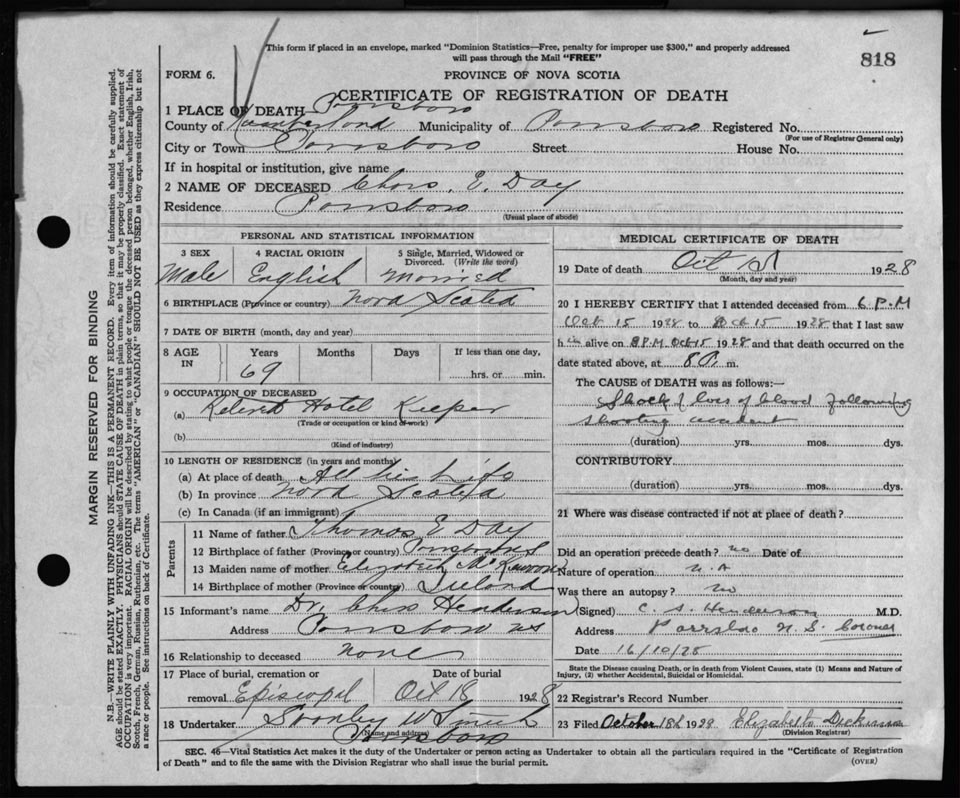 This form if placed in an envelope, marked "Dominion Statistics—Free, penalty for improper use $300," and properly addressed
will pass through the Mail "FREE"
818
FORM 6.
PROVINCE OF NOVA SCOTIA
CERTIFICATE OF REGISTRATION OF DEATH
1 PLACE OF DEATH Parrsboro
County of Cumberland Municipality of Parrsboro Registered No.
(For use of Registrar General only)
City or Town Parrsboro Street House No.
If in hospital or institution, give name
2 NAME OF DECEASED Chas. E. Day
Residence Parrsboro
(Usual place of abode)
PERSONAL AND STATISTICAL INFORMATION
3 SEX 4 RACIAL ORIGIN 5 Single, Married, Widowed or
Divorced. (Write the word)
Male English Married
6 BIRTHPLACE (Province or country) Nova Scotia
7 DATE OF BIRTH (month, day and year)
8 AGE IN Years Months Days If less than one day,
69 hrs. or min.
9 OCCUPATION OF DECEASED
(a) Retired Hotel Keeper
(Trade or occupation or kind of work)
(b)
(Kind of industry)
10 LENGTH OF RESIDENCE (in years and months)
(a) At place of death All his Life
(b) In province Nova Scotia
(c) In Canada (if an immigrant)
Parents
11 Name of father Thomas E Day
12 Birthplace of father (Province or country) Parrsboro NS
13 Maiden name of mother Elizabeth
14 Birthplace of mother (Province or country) Ireland
15 Informant's name Dr. Chas Henderson
Address Parrsboro NS
16 Relationship to deceased None
17 Place of burial, cremation or Date of burial
removal Episcopal Oct 18 1928
18 Undertaker Stanley W Smith
(Name and address)
Parrsboro
MEDICAL CERTIFICATE OF DEATH
19 Date of death Oct 1928
(Month, day and year)
20 I HEREBY CERTIFY that I attended deceased from 6 P.M
Oct 15 1928 to Oct 15 1928 that I last saw
him alive on 8 P.M Oct 15 1928 and that death occurred on the
date stated above, at 8 P. m.
The CAUSE of DEATH was as follows:—
Shock & loss of blood following
shooting accident
(duration) yrs. mos. dys.
CONTRIBUTORY
(duration) yrs. mos. dys.
21 Where was disease contracted if not at place of death?
Did an operation precede death? no Date of
Nature of operation N.A
Was there an autopsy? no
(Signed) C. S. Henderson M.D.
Address Parrsboro N.S. Coroner
Date 16/10/28
State the Disease causing Death, or in death from Violent Causes, state (1) Means and Nature of
Injury, (2) whether Accidental, Suicidal or Homicidal.
22 Registrar's Record Number
23 Filed October 18th 1928 Elizabeth Dickinson
(Division Registrar)
SEC. 46—Vital Statistics Act makes it the duty of the Undertaker or person acting as Undertaker to obtain all the particulars required in the "Certificate of Registration
of Death" and to file the same with the Division Registrar who shall issue the burial permit.
(OVER)
MARGIN RESERVED FOR BINDING
N.B.—WRITE PLAINLY WITH UNFADING INK—THIS IS A PERMANENT RECORD. Every item of information should be carefully supplied.
AGE should be stated EXACTLY. PHYSICIANS should STATE CAUSE OF DEATH in plain terms, so that it may be properly classified. Exact statement of
OCCUPATION is very important. RACIAL ORIGIN will be described by stating to what people or tongue the deceased person belonged, whether English, Irish,
Scotch, French, German, Russian, Ruthenian, etc. The terms "AMERICAN" or "CANADIAN" SHOULD NOT BE USED as they express citizenship but not
a race or people. See instructions on back of Certificate.